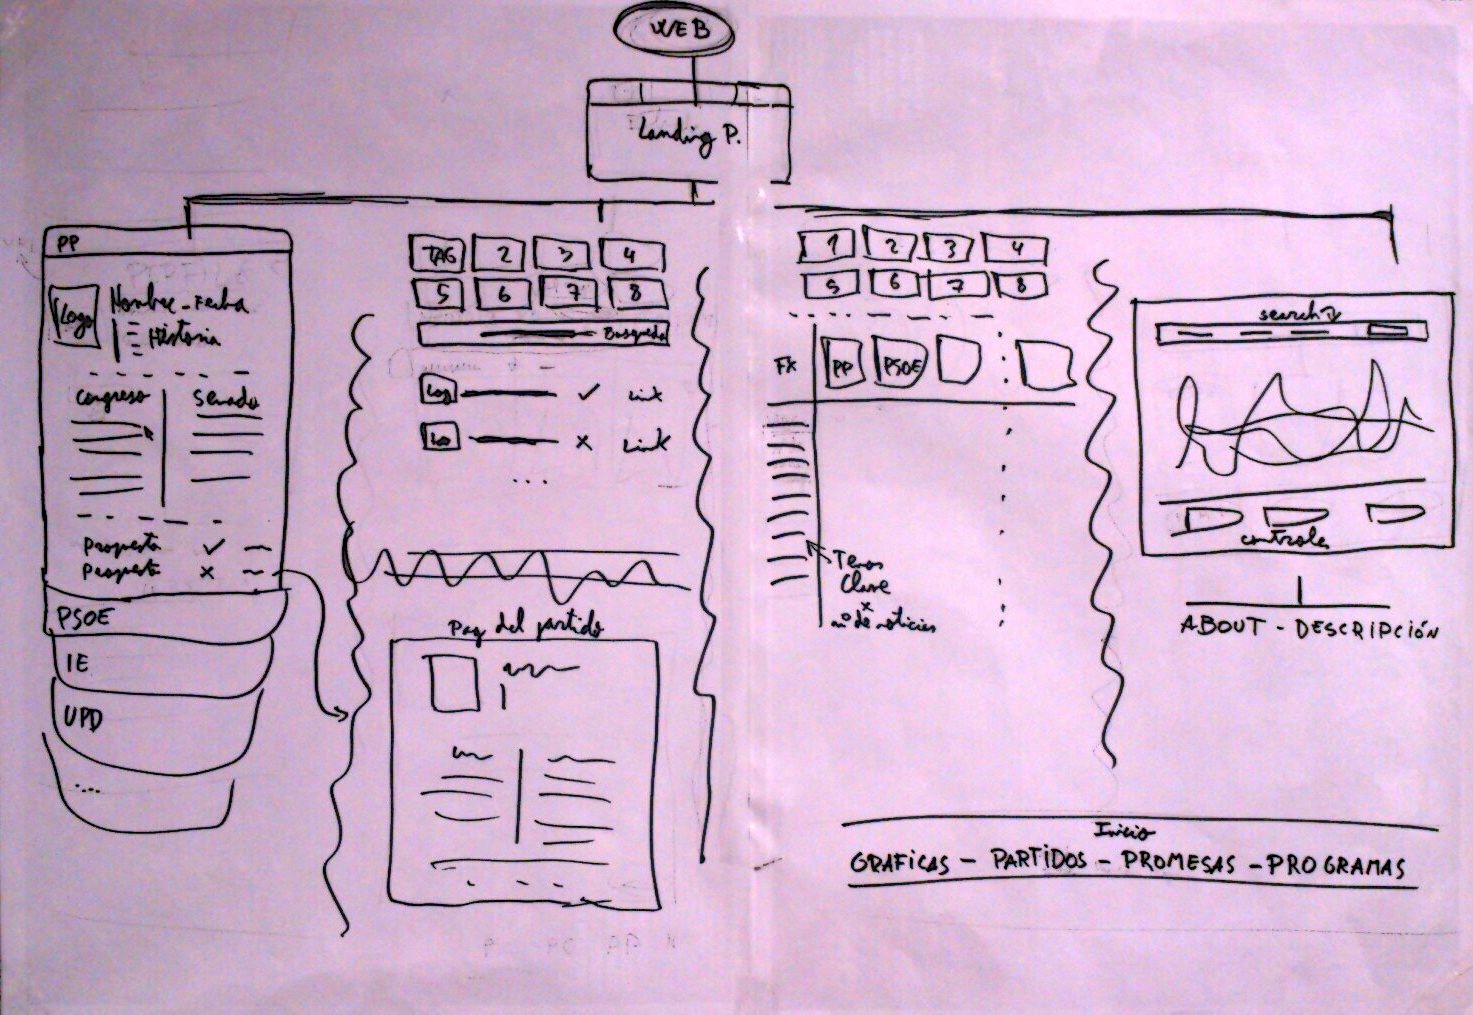 WEB
Landing P.
PP
Logo
Nombre - Fecha
Historia
Congreso
Senado
Propuesta ✓
Propuesta x
PSOE
IE
UPD
....
TAG 2 3 4
5 6 7 8
Busqueda
Logo ✓ Link
Lo x Link
...
Pag del partido
1 2 3 4
5 6 7 8
PP PSOE
Temas
Clave
x
nº de noticias
search
controles
ABOUT - DESCRIPCIÓN
Inicio
GRAFICAS - PARTIDOS - PROMESAS - PROGRAMAS